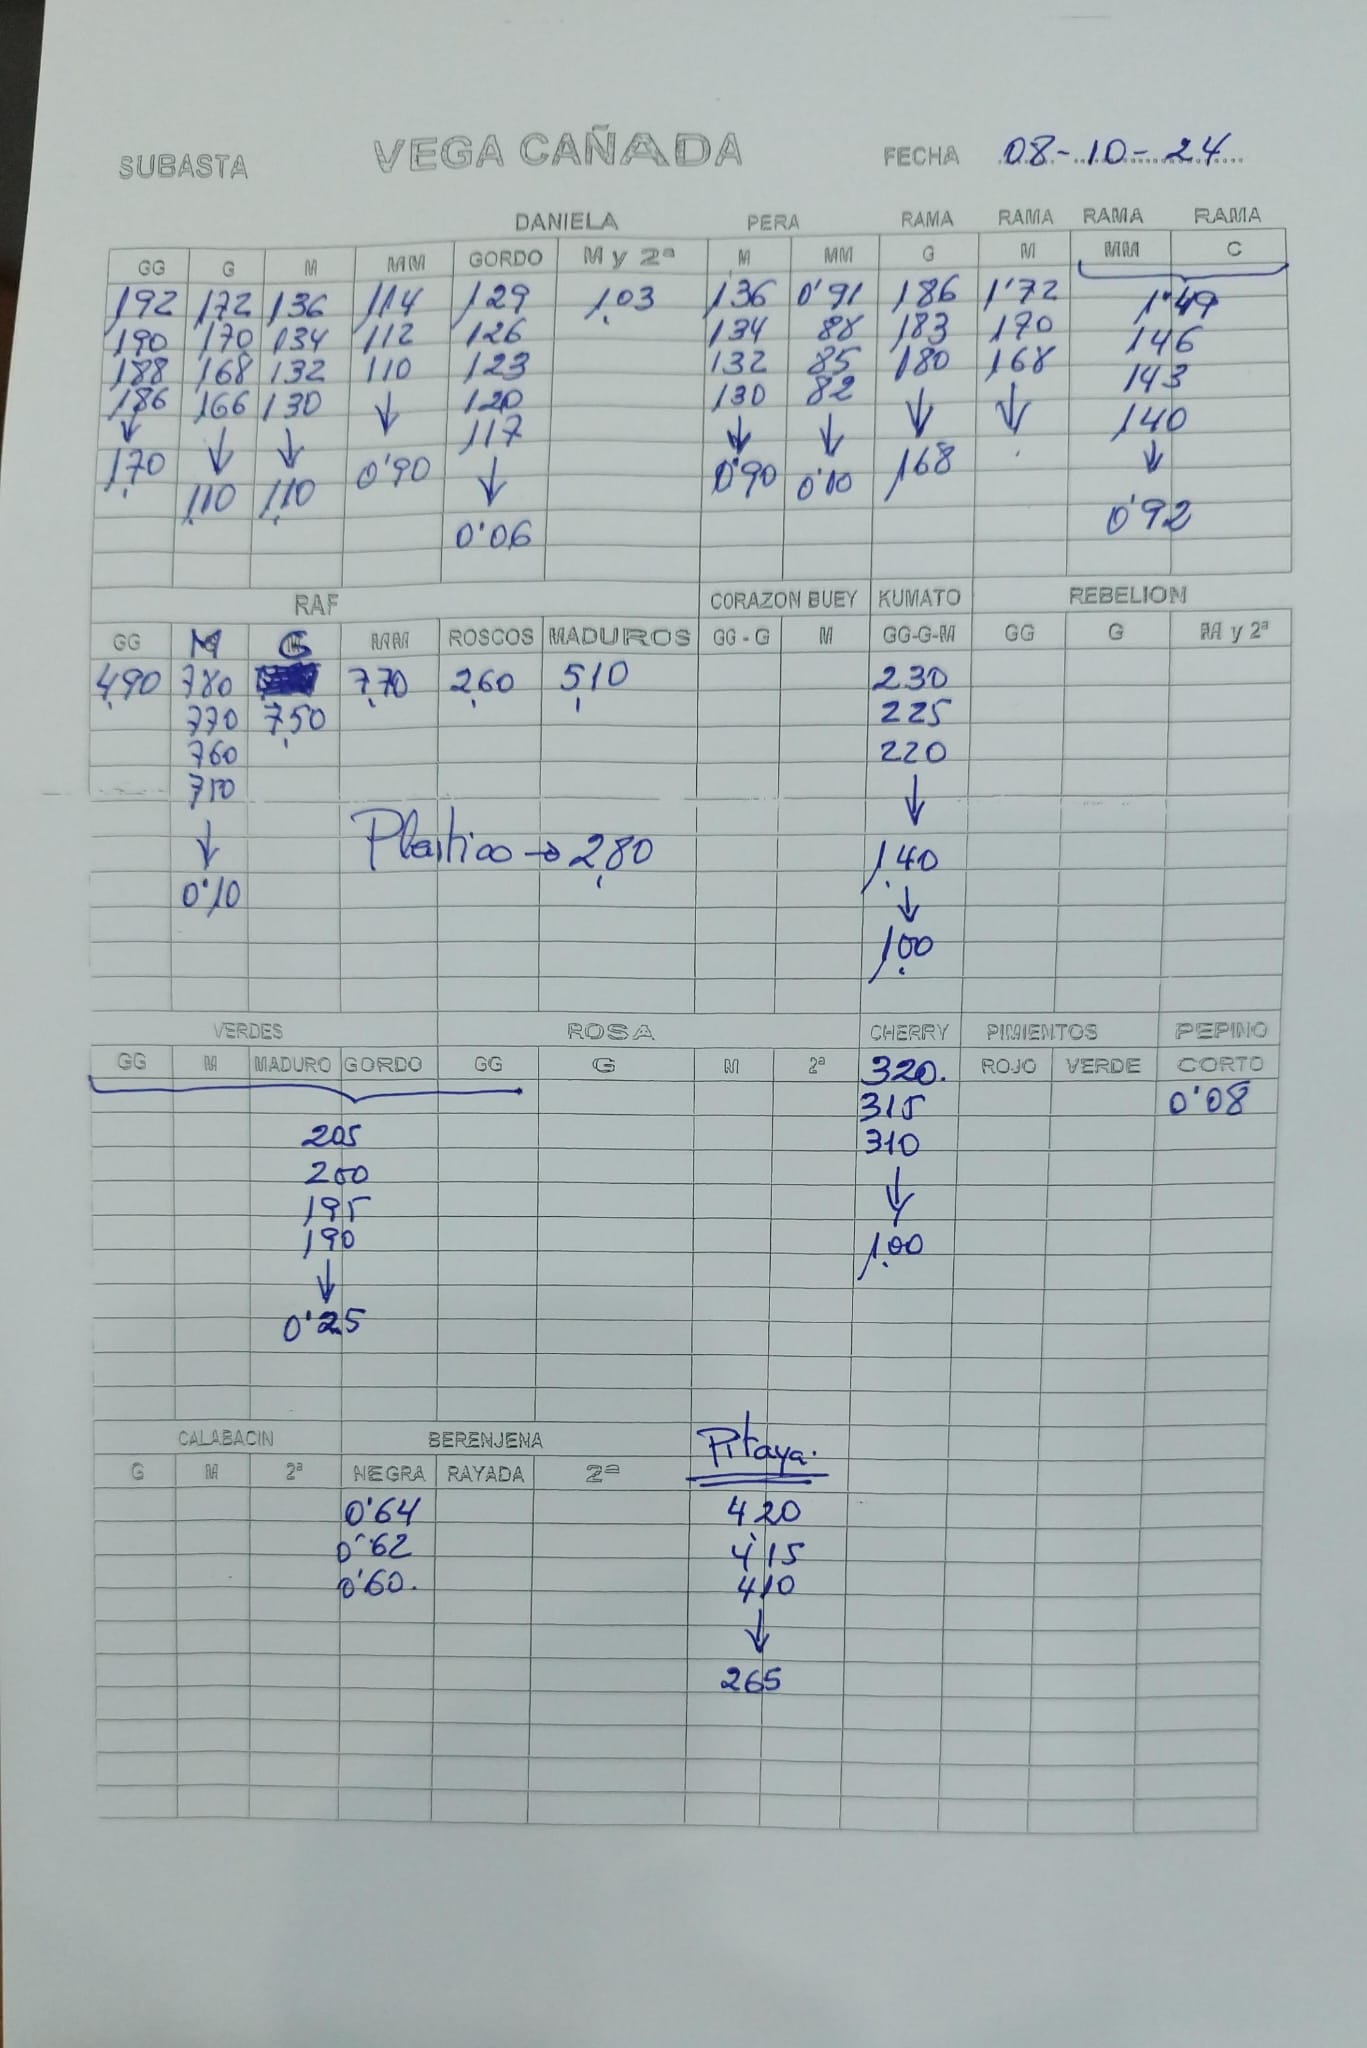 SUBASTA VEGA CAÑADA FECHA 08-10-24
DANIELA PERA RAMA RAMA RAMA RAMA
GG G M MM GORDO M y 2ª M MM G M MM C
192 172 136 114 129 1.03 136 0'91 186 1'72 1'49
190 170 134 112 126 134 88 183 170 146
188 168 132 110 123 132 85 180 168 143
186 166 130 ↓ 120 130 82 ↓ ↓ 140
↓ ↓ ↓ 117 ↓ ↓ ↓
1.70 0'90 ↓ 0'90 0'10 1.68
1.10 1.10 0'06 0'92
RAF CORAZON BUEY KUMATO REBELION
GG M G MM ROSCOS MADUROS GG - G M GG-G-M GG G M y 2ª
4.90 780 7.70 2.60 5.10 230
770 7.50 225
760 220
750 ↓
↓ Plastico → 2.80 1.40
0'10 ↓
1.00
VERDES ROSA CHERRY PIMIENTOS PEPINO
GG M MADURO GORDO GG G M 2ª 320. ROJO VERDE CORTO
315 0'08
205 310
200 ↓
195
190 1.00
↓
0'25
CALABACIN BERENJENA Pitaya.
G M 2ª NEGRA RAYADA 2ª
0'64 420
0'62 4'15
0'60. 410
↓
265